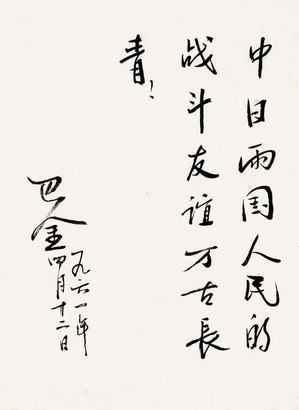 中日兩国人民的
战斗友谊万古長
青！
巴金
一九六一年
四月十二日